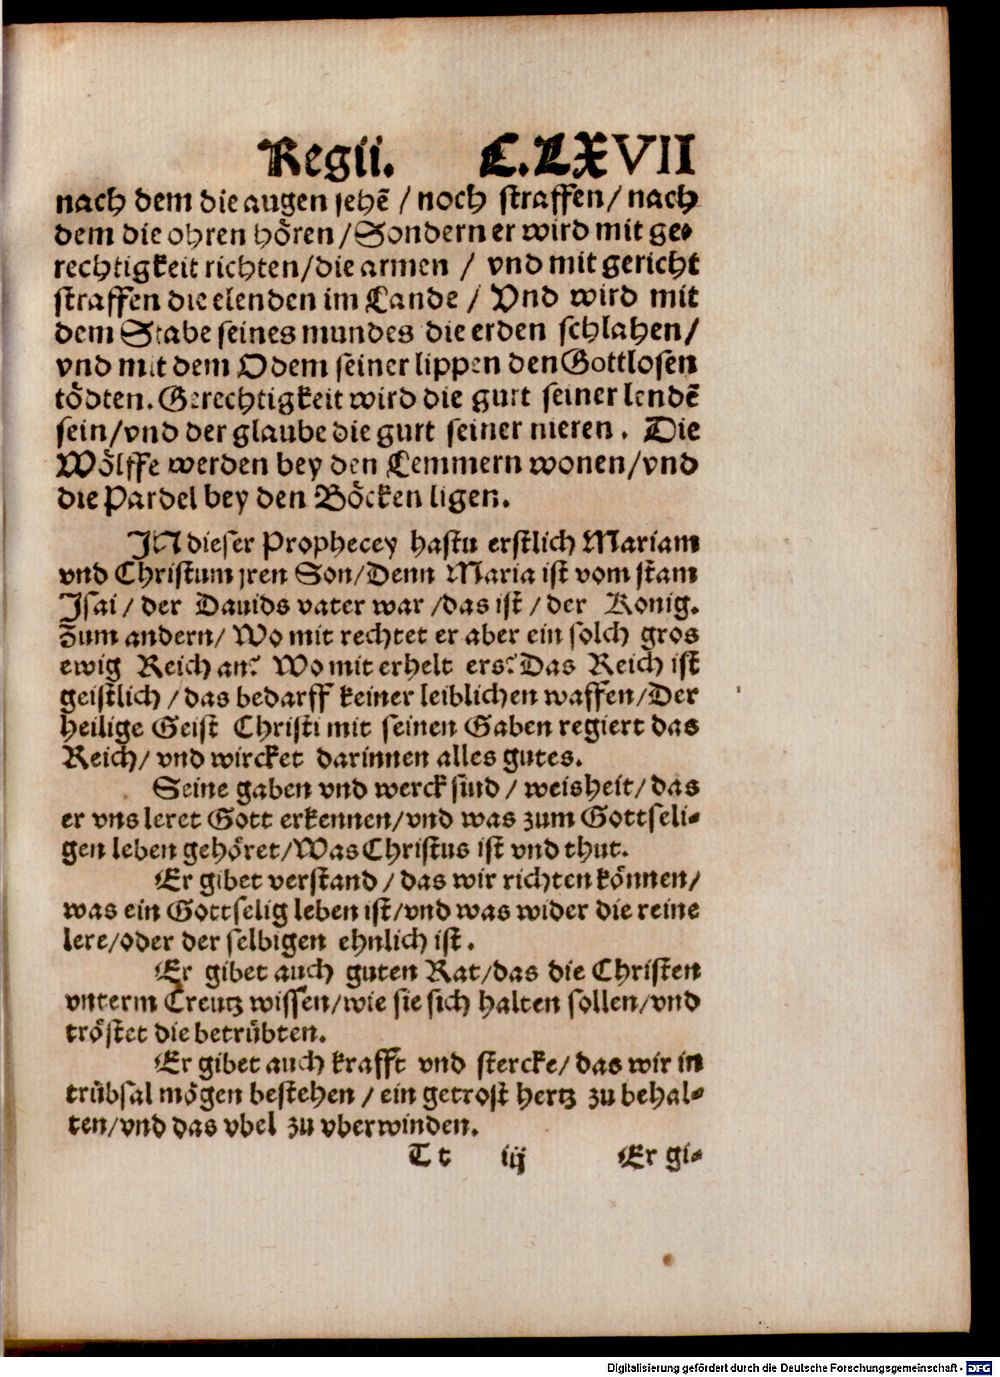 Regii. C.LXVII
nach dem die augen sehē / noch straffen / nach
dem die ohren hören / Sondern er wird mit ge-
rechtigkeit richten / die armen / vnd mit gericht
straffen die elenden im Lande / Vnd wird mit
dem Stabe seines mundes die erden schlahen /
vnd mit dem Odem seiner lippen den Gottlosen
tödten. Gerechtigkeit wird die gurt seiner lendē
sein / vnd der glaube die gurt seiner nieren. Die
Wölffe werden bey den Lemmern wonen / vnd
die Pardel bey den Böcken ligen.
IN dieser Prophecey hastu erstlich Mariam
vnd Christum jren Son / Denn Maria ist vom stam
Isai / der Dauids vater war / das ist / der Konig.
Zum andern / Wo mit rechtet er aber ein solch gros
ewig Reich an? Wo mit erhelt ers? Das Reich ist
geistlich / das bedarff keiner leiblichen waffen / Der
heilige Geist Christi mit seinen Gaben regiert das
Reich / vnd wircket darinnen alles gutes.
Seine gaben vnd werck sind / weisheit / das
er vns leret Gott erkennen / vnd was zum Gottseli-
gen leben gehöret / Was Christus ist vnd thut.
Er gibet verstand / das wir richten können /
was ein Gottselig leben ist / vnd was wider die reine
lere / oder der selbigen ehnlich ist.
Er gibet auch guten Rat / das die Christen
vnterm Creutz wissen / wie sie sich halten sollen / vnd
tröstet die betrübten.
Er gibet auch krafft vnd stercke / das wir in
trübsal mögen bestehen / ein getrost hertz zu behal-
ten / vnd das vbel zu vberwinden.
T t iij Er gi-
Digitalisierung gefördert durch die Deutsche Forschungsgemeinschaft - DFG